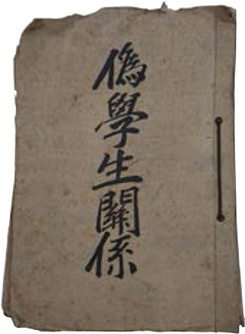 偽學生關係